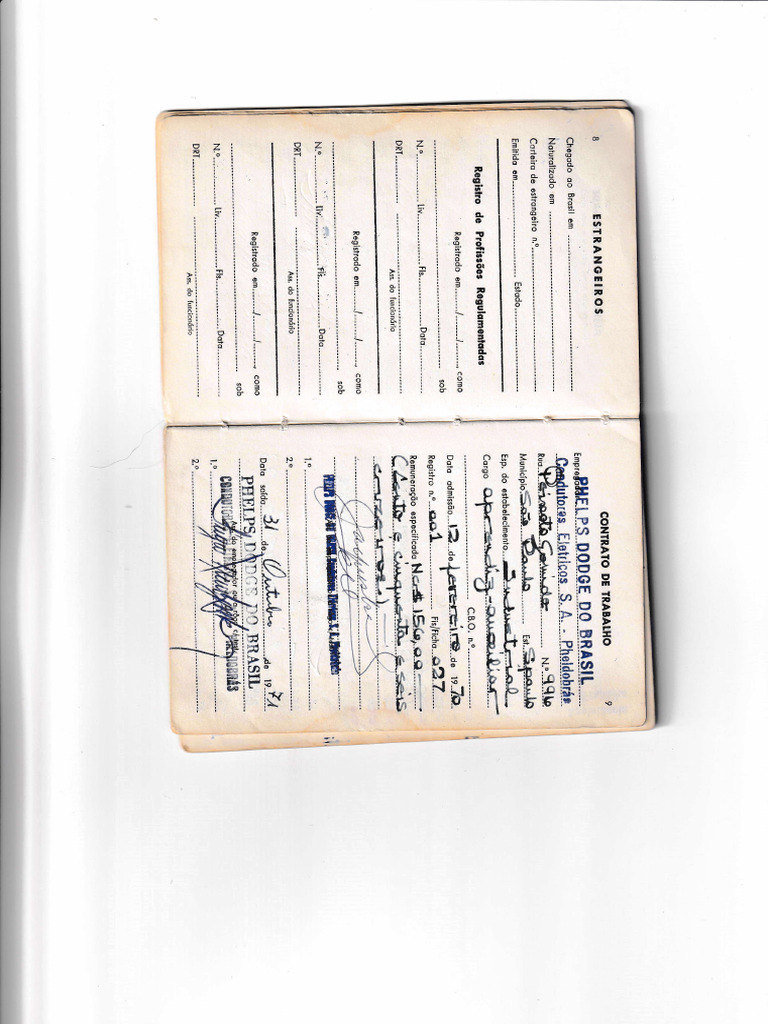 8
ESTRANGEIROS
Chegado ao Brasil em
Naturalizado em
Carteira de estrangeiro n.º
Emitida em Estado
Registro de Profissões Regulamentadas
Registrado em / / , como
sob
N.º Liv. Fls. Data
DRT
Ass. do funcionário
Registrado em / / , como
sob
N.º Liv. Fls. Data
DRT
Ass. do funcionário
Registrado em / / , como
sob
N.º Liv. Fls. Data
DRT
Ass. do funcionário
9
CONTRATO DE TRABALHO
PHELPS DODGE DO BRASIL
Empregador
Condutores Eletricos S. A. - Pheldobrás
Rua Peixoto Gomide N.º 996
Município São Paulo Est. S. paulo
Esp. do estabelecimento Industrial
Cargo aprendiz-auxiliar
C.B.O. n.º
Data admissão 12 de fevereiro de 1970
Registro n.º 001 Fls/Ficha 027
Remuneração especificada Ncr$ 156,00
(cento e cinquenta e seis
cruzeiros)
1.º
2.º
Data saída 31 de Outubro de 1971
PHELPS DODGE DO BRASIL
1.º
2.º